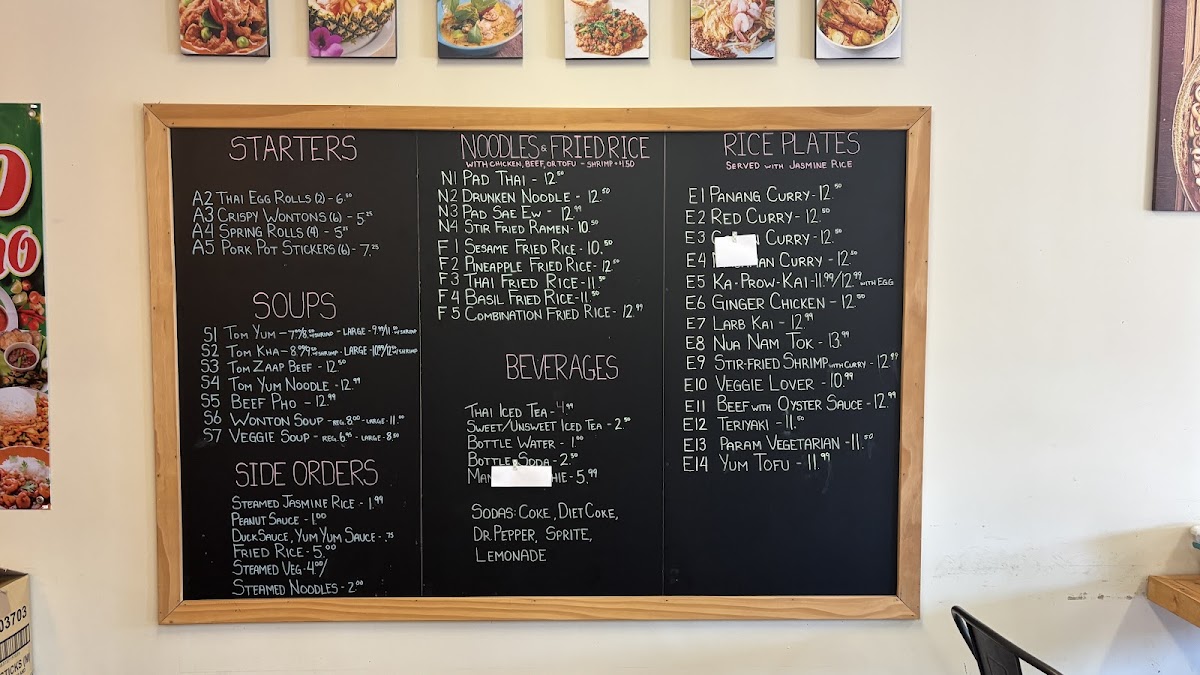 STARTERS
A2 THAI EGG ROLLS (2) - 6.50
A3 CRISPY WONTONS (6) - 5.25
A4 SPRING ROLLS (4) - 5
A5 PORK POT STICKERS (6) - 7.25
SOUPS
S1 TOM YUM - LARGE -
S2 TOM KHA - LARGE -
S3 TOM ZAAP BEEF - 12.50
S4 TOM YUM NOODLE - 12.99
S5 BEEF PHO - 12.99
S6 WONTON SOUP - REG. 8.00 - LARGE - 11.00
S7 VEGGIE SOUP - REG. 6.95 - LARGE - 8.50
SIDE ORDERS
STEAMED JASMINE RICE - 1.99
PEANUT SAUCE - 1.00
DUCK SAUCE, YUM YUM SAUCE - .75
FRIED RICE - 5.00
STEAMED VEG - 4.00/
STEAMED NOODLES - 2.00
NOODLES & FRIED RICE
WITH CHICKEN, BEEF, OR TOFU - SHRIMP + 1.50
N1 PAD THAI - 12.50
N2 DRUNKEN NOODLE - 12.50
N3 PAD SAE EW - 12.99
N4 STIR FRIED RAMEN - 10.50
F1 SESAME FRIED RICE - 10.50
F2 PINEAPPLE FRIED RICE - 12.50
F3 THAI FRIED RICE - 11.50
F4 BASIL FRIED RICE - 11.50
F5 COMBINATION FRIED RICE - 12.99
BEVERAGES
THAI ICED TEA - 4.99
SWEET/UNSWEET ICED TEA - 2.50
BOTTLE WATER - 1.00
BOTTLE SODA - 2.50
MAN HIE - 5.99
SODAS: COKE, DIET COKE,
DR. PEPPER, SPRITE,
LEMONADE
RICE PLATES
SERVED WITH JASMINE RICE
E1 PANANG CURRY - 12.50
E2 RED CURRY - 12.50
E3 CURRY - 12.50
E4 MAN CURRY - 12.50
E5 KA-PROW-KAI - 11.99/12.99 WITH EGG
E6 GINGER CHICKEN - 12.50
E7 LARB KAI - 12.99
E8 NUA NAM TOK - 13.99
E9 STIR-FRIED SHRIMP WITH CURRY - 12.99
E10 VEGGIE LOVER - 10.99
E11 BEEF WITH OYSTER SAUCE - 12.99
E12 TERIYAKI - 11.50
E13 PARAM VEGETARIAN - 11.50
E14 YUM TOFU - 11.99
03703